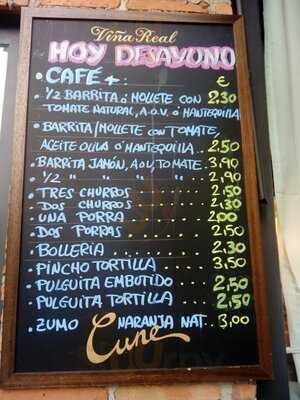 Viña Real
HOY DESAYUNO
• CAFÉ + : €
• ½ BARRITA ó MOLLETE CON 2,30
TOMATE NATURAL, A.O.V. ó MANTEQUILLA
• BARRITA/MOLLETE CON TOMATE,
ACEITE OLIVA ó MANTEQUILLA 2,50
• BARRITA JAMÓN, AOV, TOMATE. 3,90
• ½ " " " " . . . 2,90
• TRES CHURROS . . . . . . . 2,50
• DOS CHURROS . . . . . . . 2,30
• UNA PORRA . . . . . . . 2,00
• DOS PORRAS . . . . . . . 2,50
• BOLLERIA . . . . . . . . . 2,30
• PINCHO TORTILLA . . . . . 3,50
• PULGUITA EMBUTIDO . . . . 2,50
• PULGUITA TORTILLA . . . . 2,50
• ZUMO NARANJA NAT. . 3,00
Cune